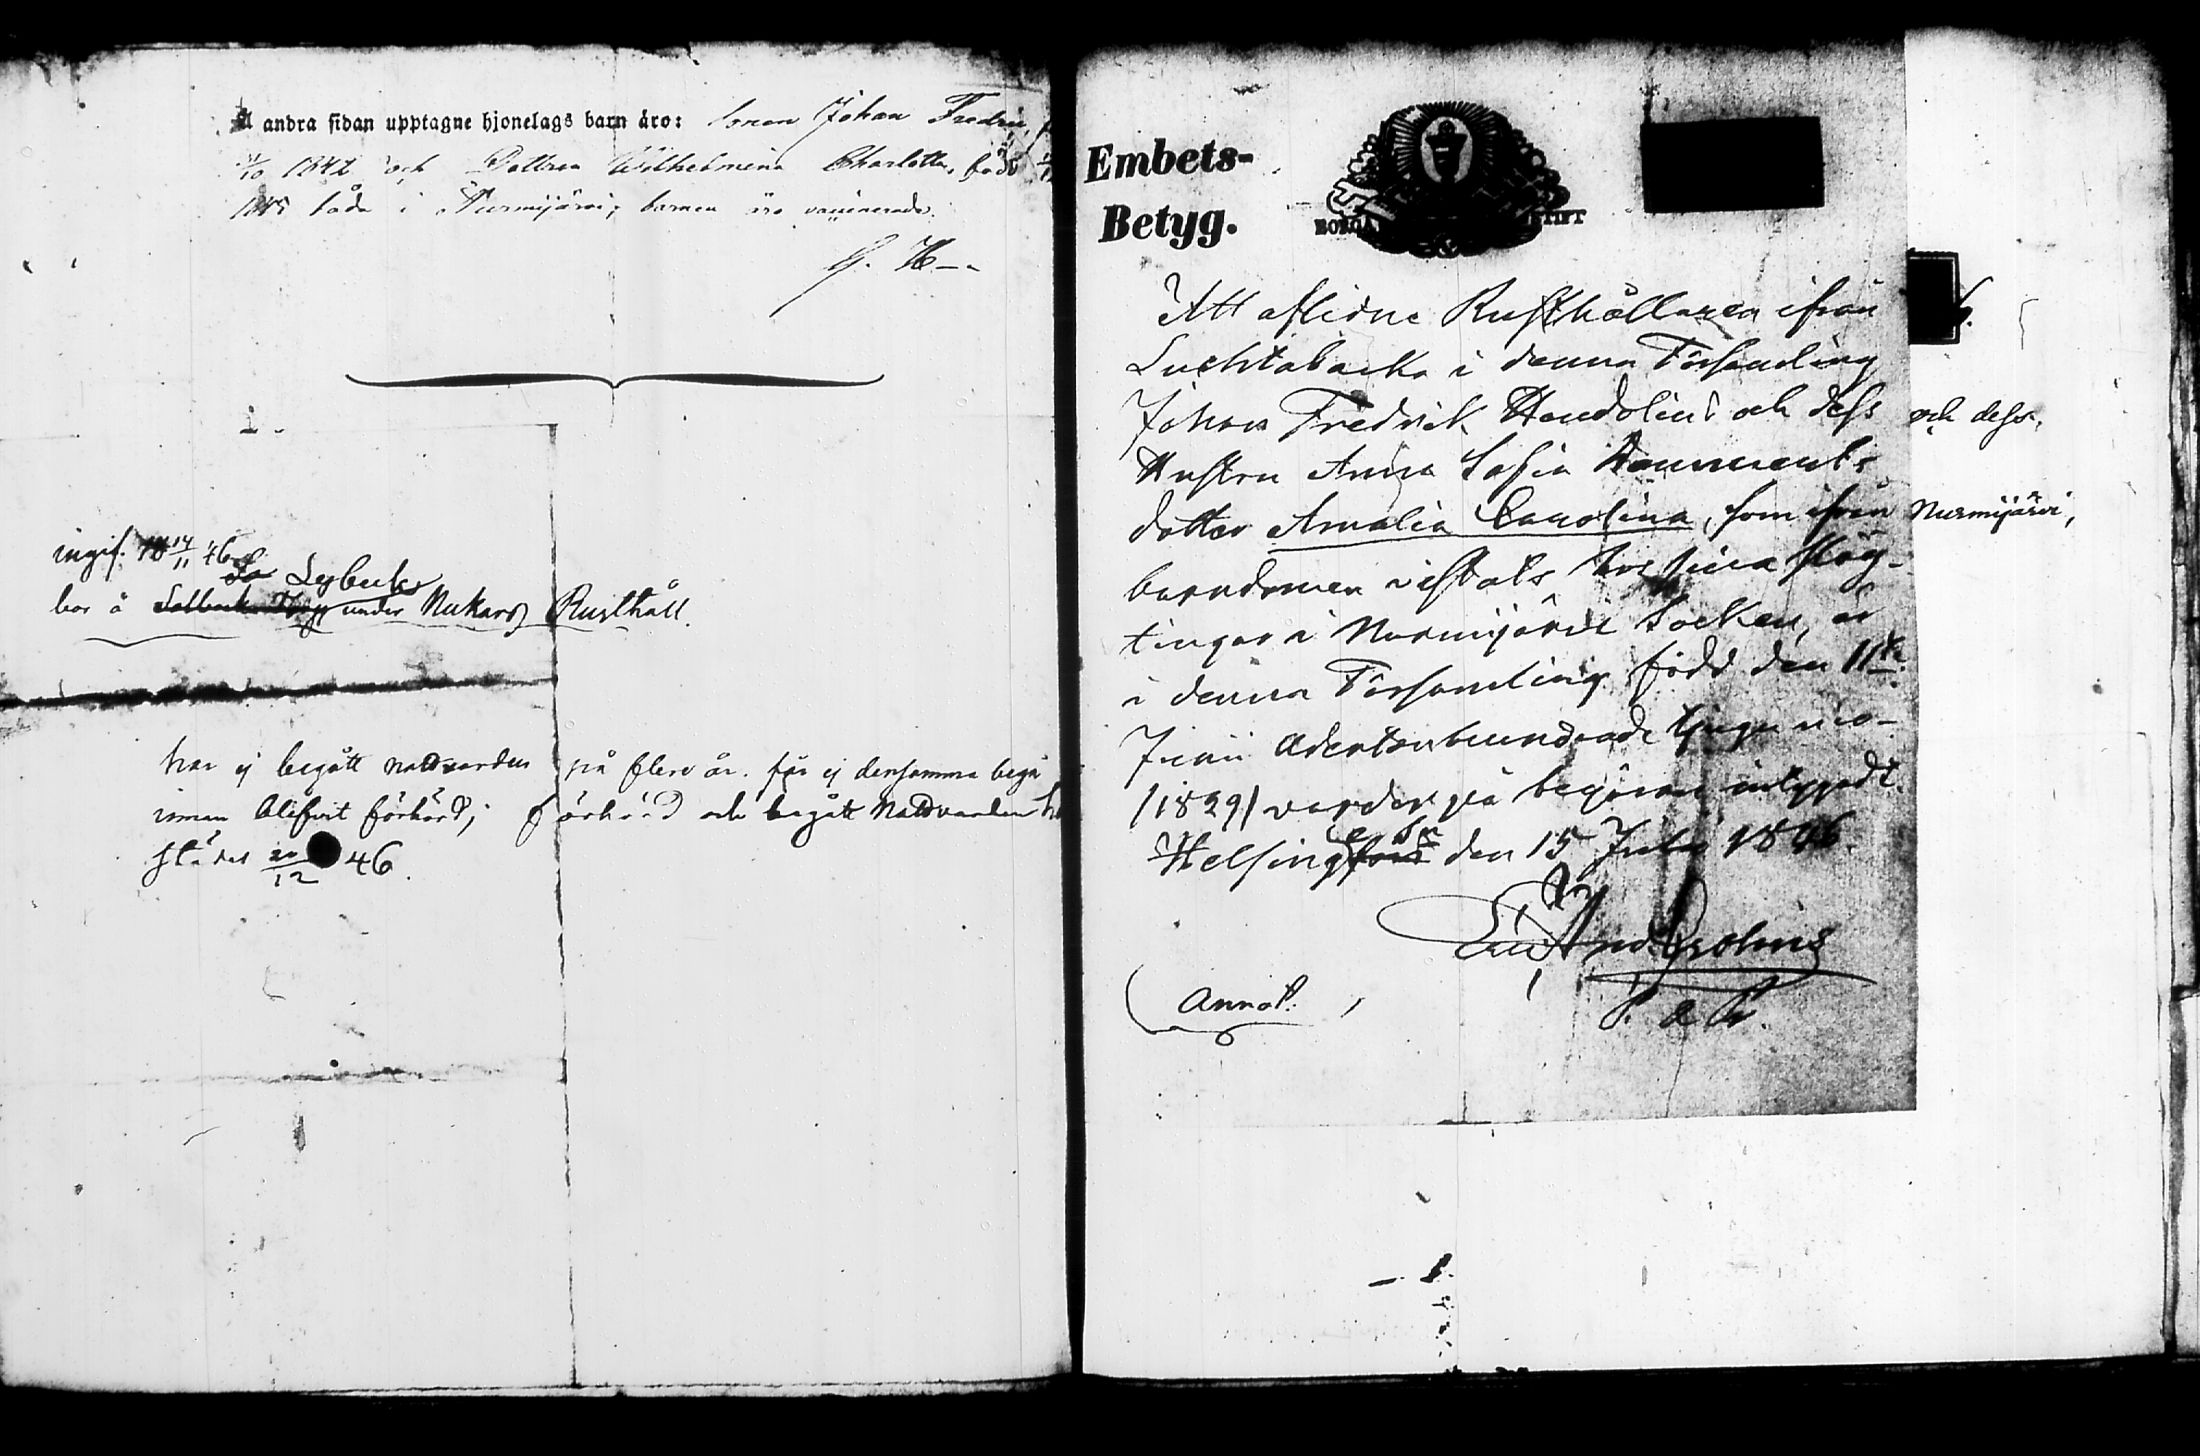 Å andra sidan upptagne hjonelags barn äro: sonen Johan Fredric, f
/10 1842 och Dottren Wilhelmina Charlotta, född
1845 båda i Nurmijärvi; barnen äro vaccinerade.
G. H–.
ingif. 18 14/11 46
Lybecks
bor å under Nukars Rusthåll.
har ej begått nattvarden på flere år. får ej densamma begå
innan blifvit förhörd; förhörd och begått Nattvarden h
städes 20/12 46.
Embets-
Betyg.
BORGÅ STIFT
Att aflidne Rusthållaren ifrån
Luchtabacka i denna Församling
Johan Fredrik Handolins och dess
och dess
Hustru Anna Sofia
dotter Amalia Carolina, som ifrån
Nurmijärvi,
barndomen vistats hos sina släg-
tingar i Nurmijärvi Socken, är
i denna Församling född den 11te
Junii Adertonhundrade tjugu nio
/1829/ varder på begäran intygadt.
Helsinge den 15 Juli 1846.
P. a P.
Annot.